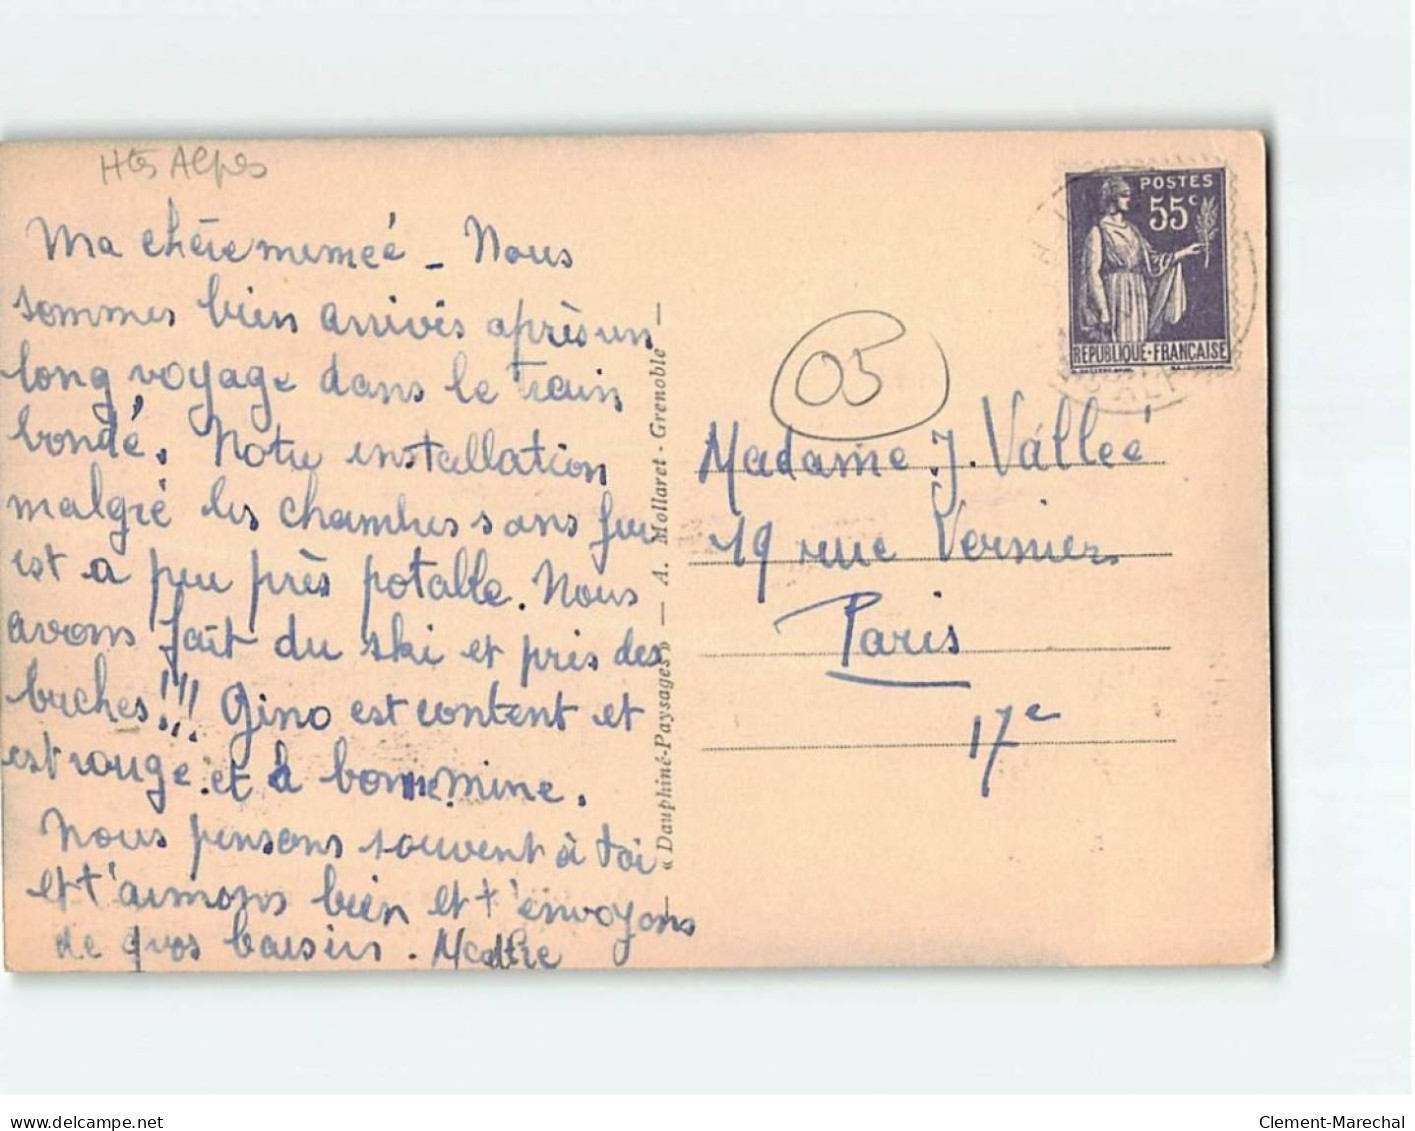 Htes Alpes
Ma chère memeé - Nous
sommes bien arrivés après un
long voyage dans le train
bondé. Notre installation
malgré les chambres sans feu
est a peu près potable. Nous
avons fait du ski et pris des
buches!!! Gino est content et
est rouge et a bonne mine.
Nous pensons souvent à toi
et t'aimons bien et t'envoyons
de gros baisers.
« Dauphiné-Paysages » — A. Mollaret - Grenoble
05
POSTES
55c
REPUBLIQUE-FRANÇAISE
Madame J. Valleé
19 rue Vernier
Paris
17e
delcampe.net
Clement-Marechal